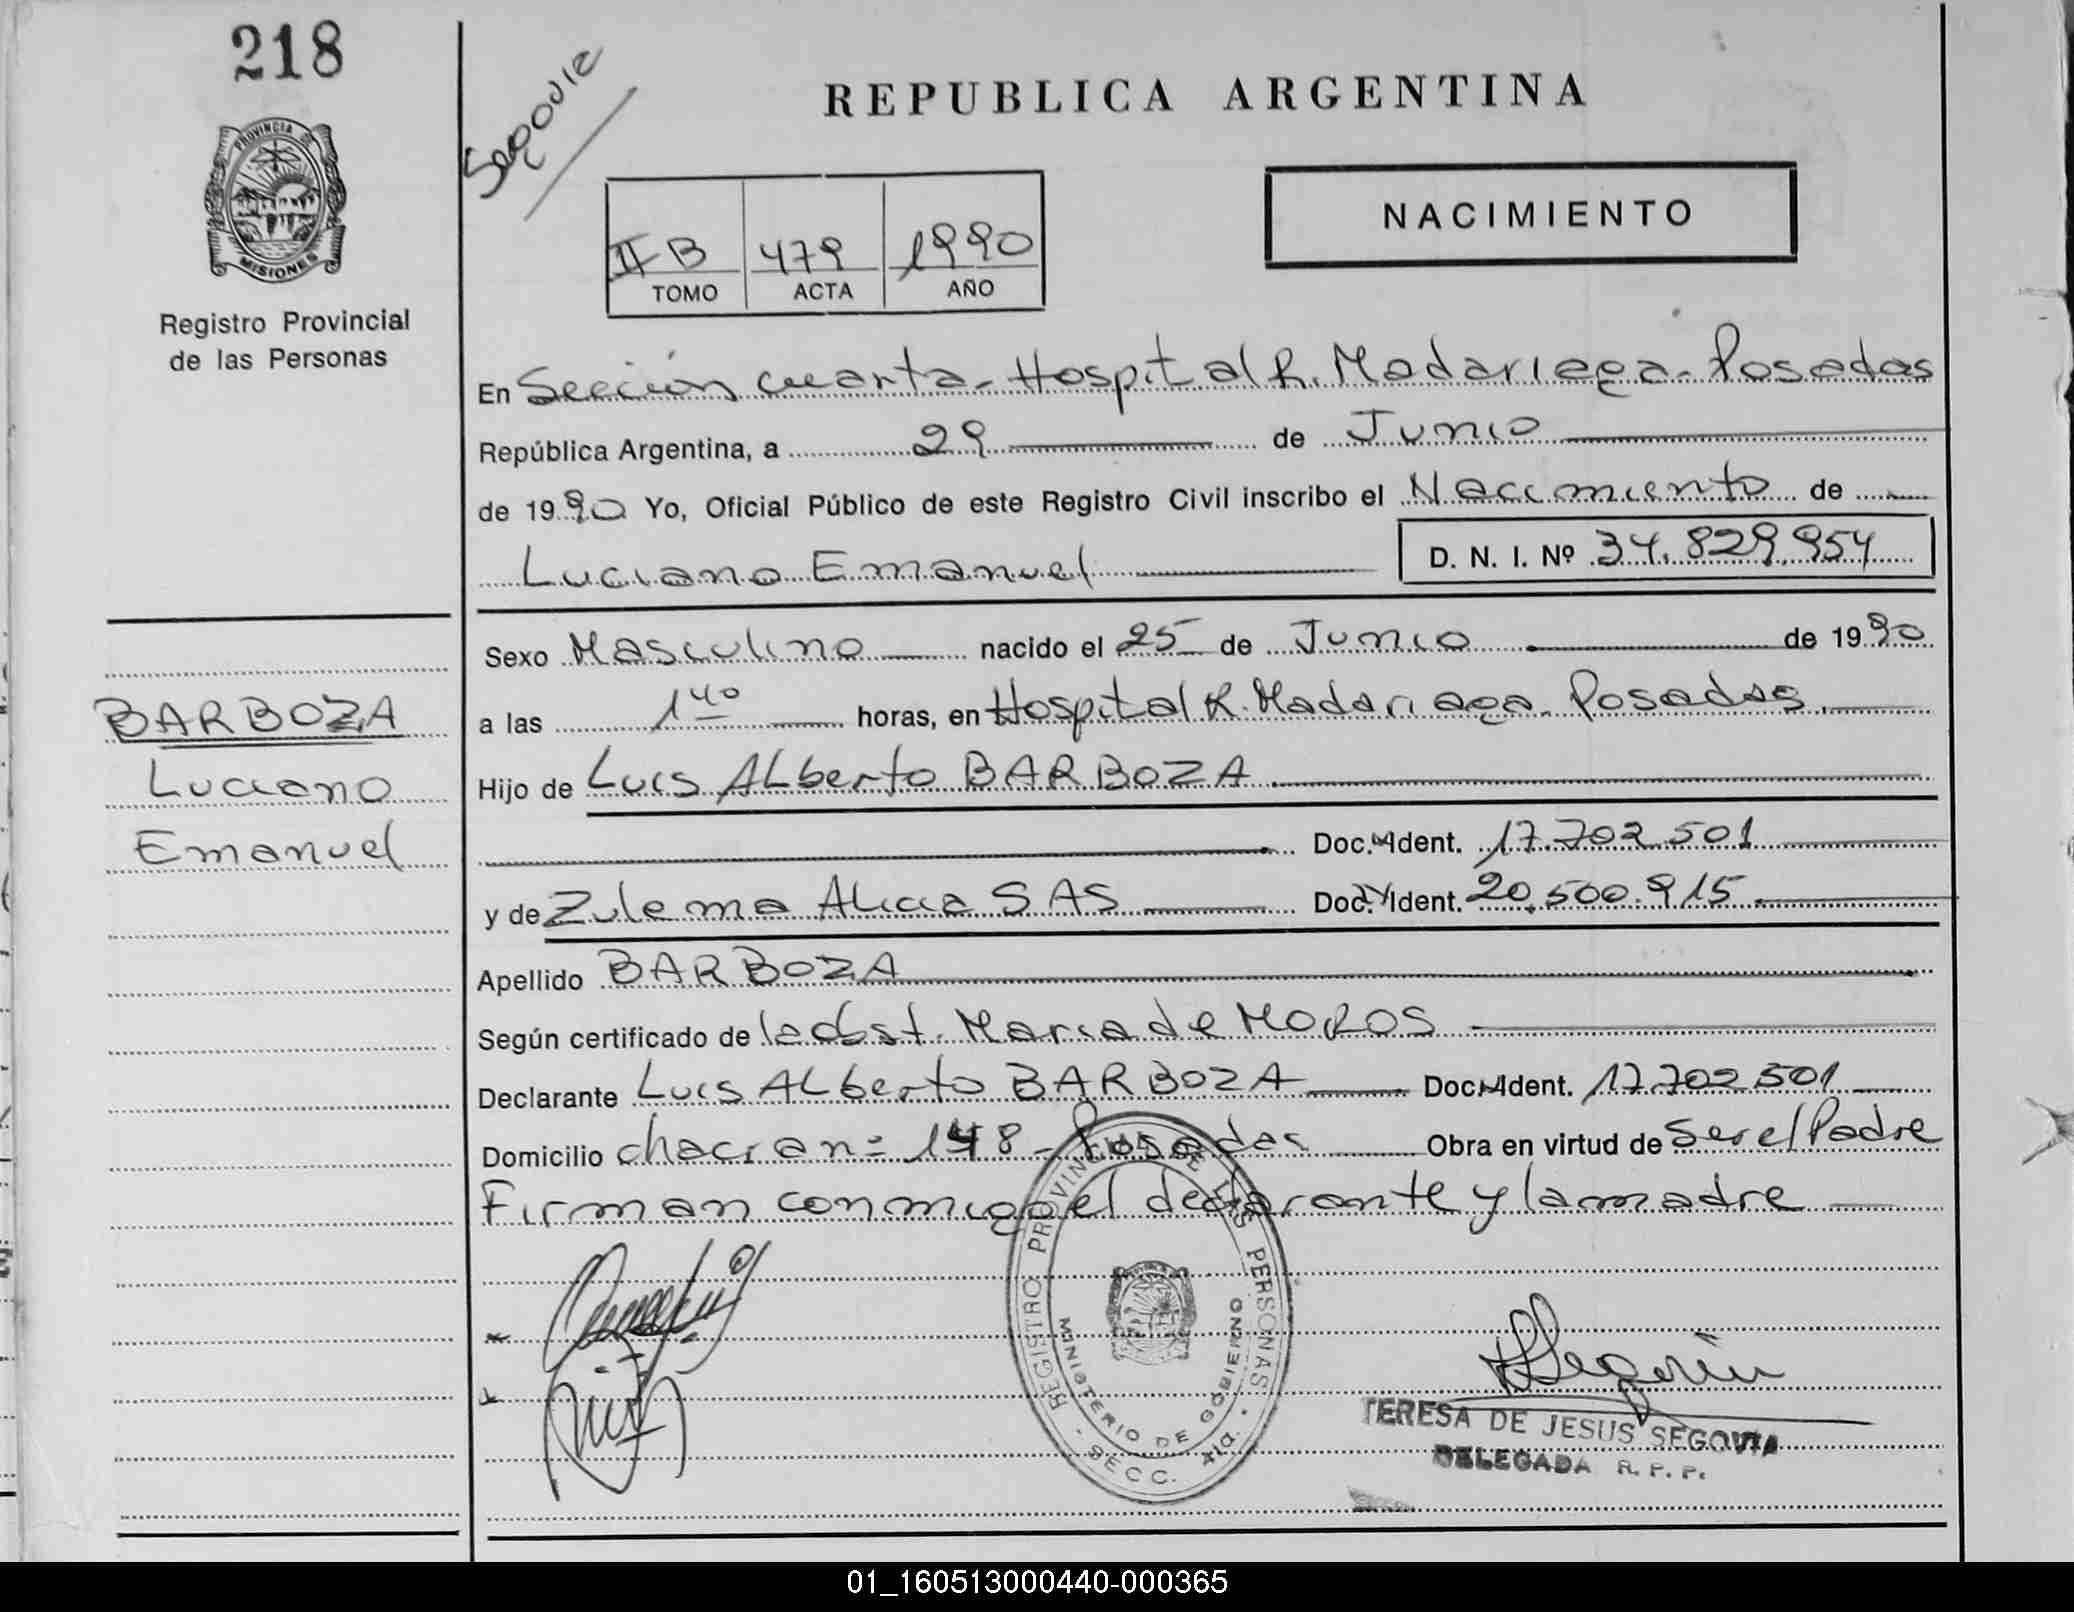 218
Segovia
REPUBLICA ARGENTINA
NACIMIENTO
PROVINCIA DE
MISIONES
Registro Provincial
de las Personas
II B 479 1990
TOMO ACTA AÑO
En Sección cuarta - Hospital R. Madariaga - Posadas
República Argentina, a 29 de Junio
de 1990 Yo, Oficial Público de este Registro Civil inscribo el Nacimiento de
Luciano Emanuel D. N. I. Nº 34.829.954
Sexo Masculino nacido el 25 de Junio de 1990
a las 1 40 horas, en Hospital R. Madariaga - Posadas
Hijo de Luis Alberto BARBOZA
Doc. Ident. 17.702.501
y de Zulema Alicia SAS Doc. Ident. 20.500.915
Apellido BARBOZA
Según certificado de la Obst. Maria de MOROS
Declarante Luis Alberto BARBOZA Doc. Ident. 17.702.501
Domicilio chacra n= 148 - Posadas Obra en virtud de Ser el Padre
Firman conmigo el declarante y la madre
BARBOZA
Luciano
Emanuel
REGISTRO PROVINCIAL DE LAS PERSONAS
MINISTERIO DE GOBIERNO
SECC. 4ta.
Segovia
TERESA DE JESUS SEGOVIA
DELEGADA R. P. P.
01_160513000440-000365